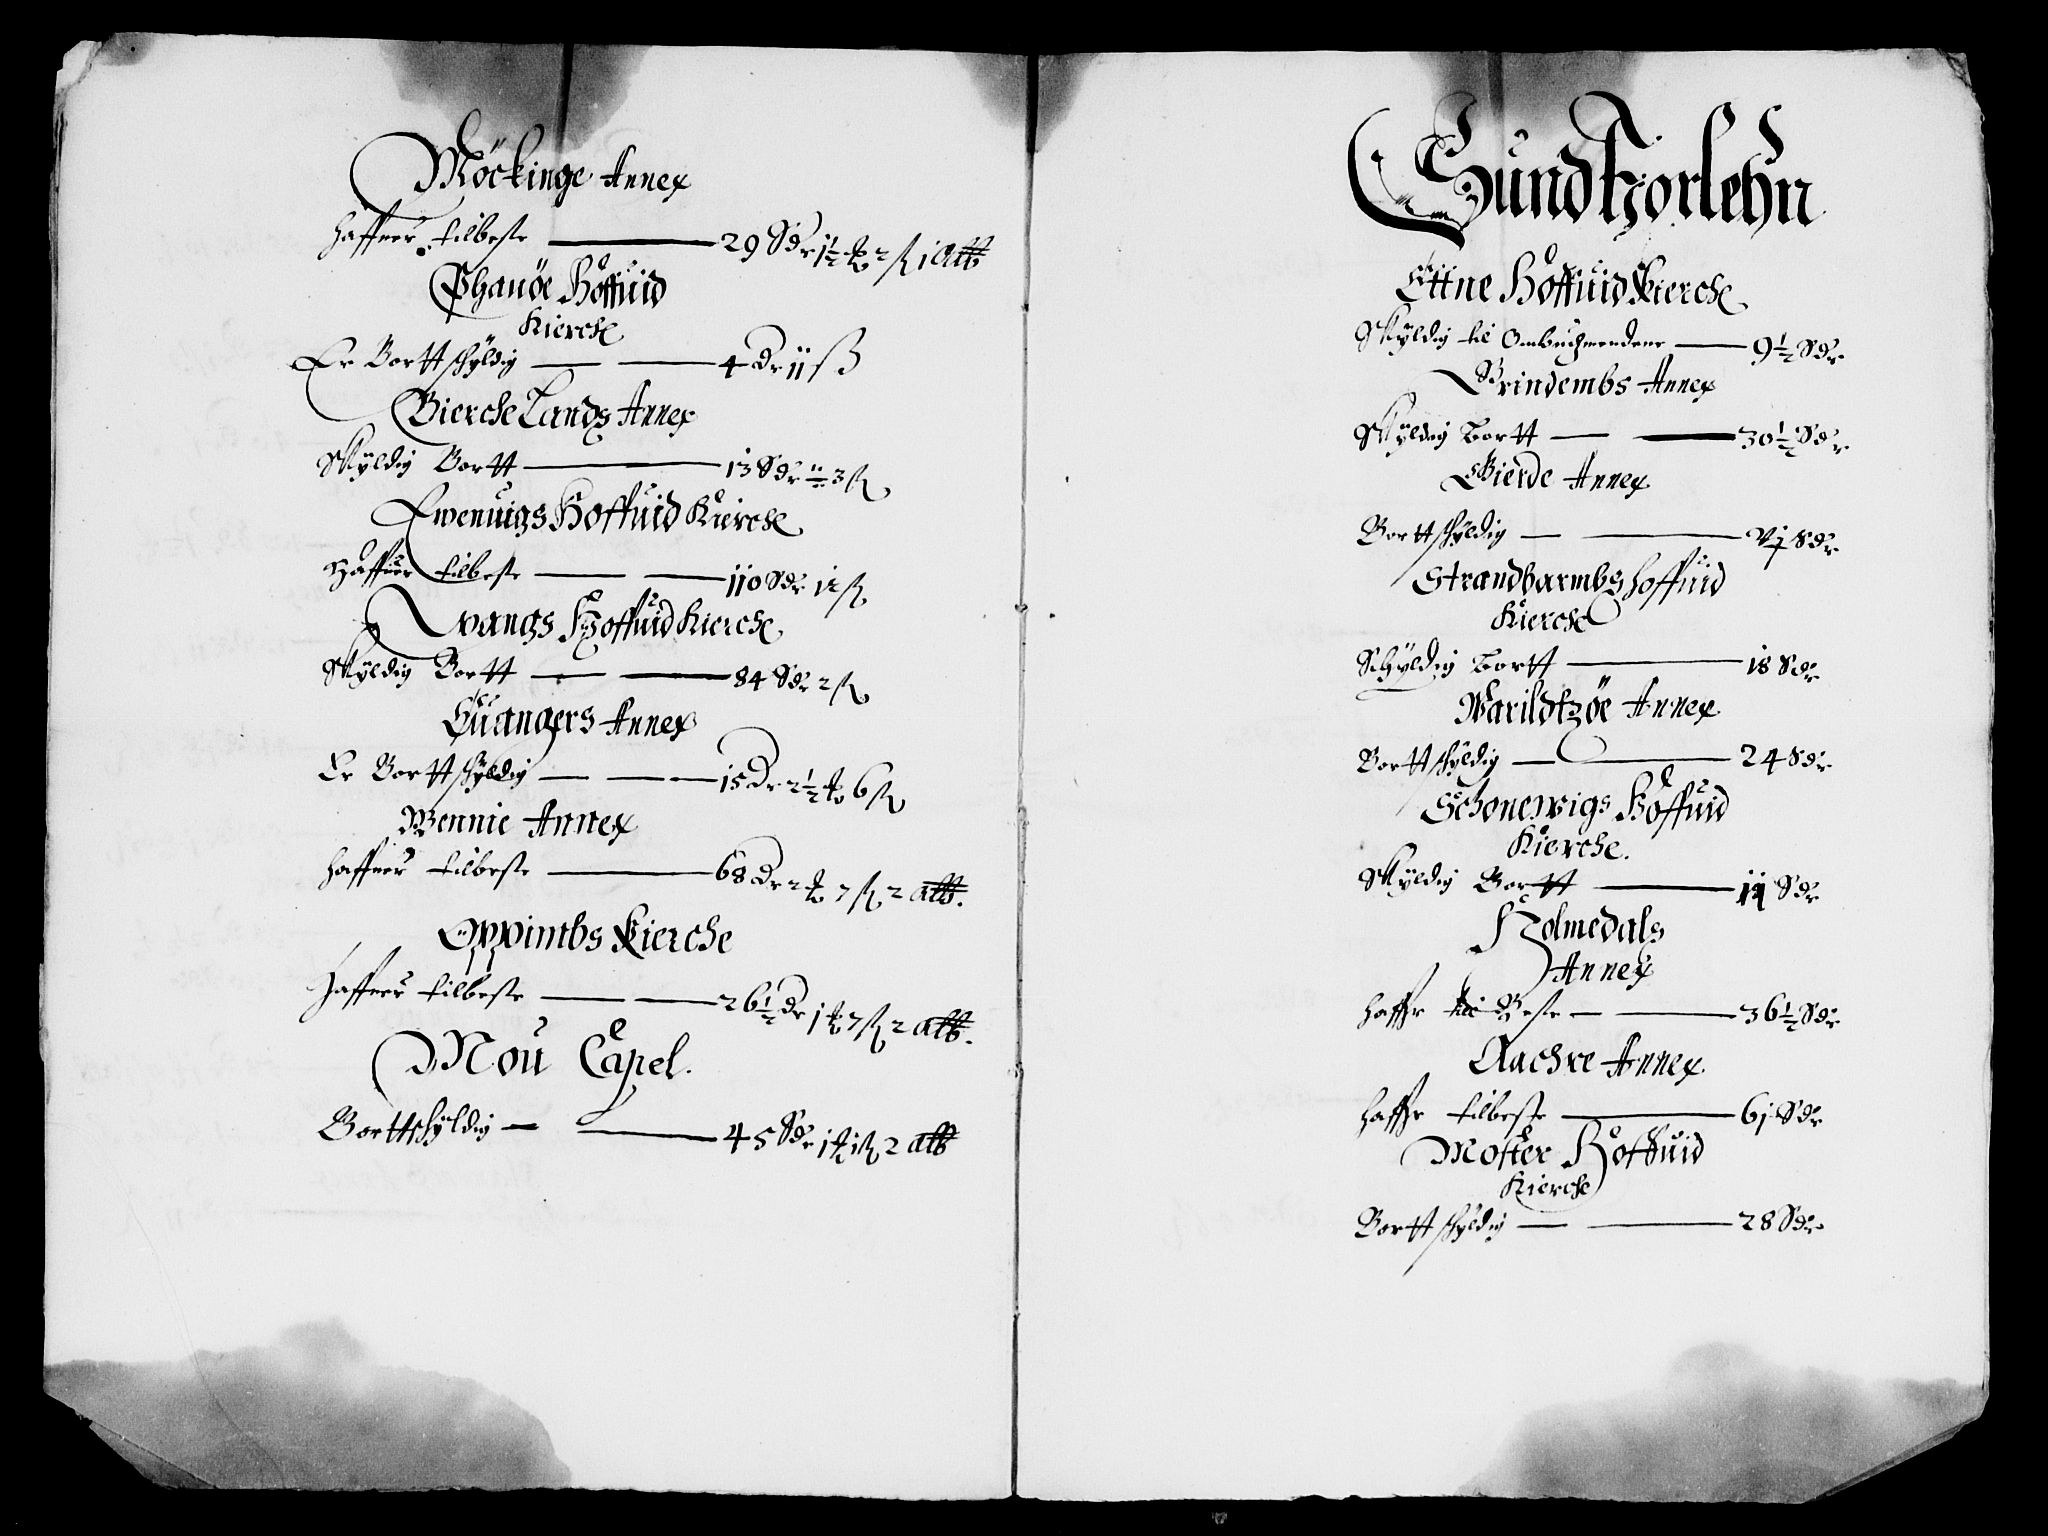 Möckinge Annex
haffuer tilbeste 29 Sdr 1½ ß 1 alb
Phanöe Hoffuid
Kierche
Er Bortt schyldig 4 Dr ii ß
Bierche Lands Annex
Skyldig Bortt 13 Sdr 3 ß
Ewenuigs Hoffuid Kierche
Haffuer tilbeste 110 Sdr 12 ß
Wangs Hoffuid Kierche
Skyldig Bortt 84 Sdr 2 ß
Quangers Annex
Er Bortt schyldig 15 Dr 2½ ß 6 ß
Wennie Annex
haffuer tilbeste 68 Dr 2 7 ß 2 alb.
Oppimbs Kierche
Haffuer tilbeste 26½ Dr 1 7 ß 2 alb.
Mou Capel.
Borttschyldig 45 Sdr 1 1 ß 2 alb
Sundhorlehn
Ettne Hoffuid Kierche
Skyldig til Ombuchmendene 9½ Sdr
Grindembs Annex
Skyldig bortt 30½ Sdr
Gierde Annex
Bortt schyldig vj Sdr
Strandbarmbs hoffuid
Kierche
Schyldig bortt 18 Sdr
Warildtzöe Annex
Bortt schyldig 24 Sdr
Schonewigs Hoffuid
Kierche.
Skyldig Bortt 11 Sdr
Holmedals
Annex
haffr til Beste 36½ Sdr
Aachre Annex
haffr tilbeste 61 Sdr
Moster Hoffuid
Kierche
Bortt schyldig 28 Sdr